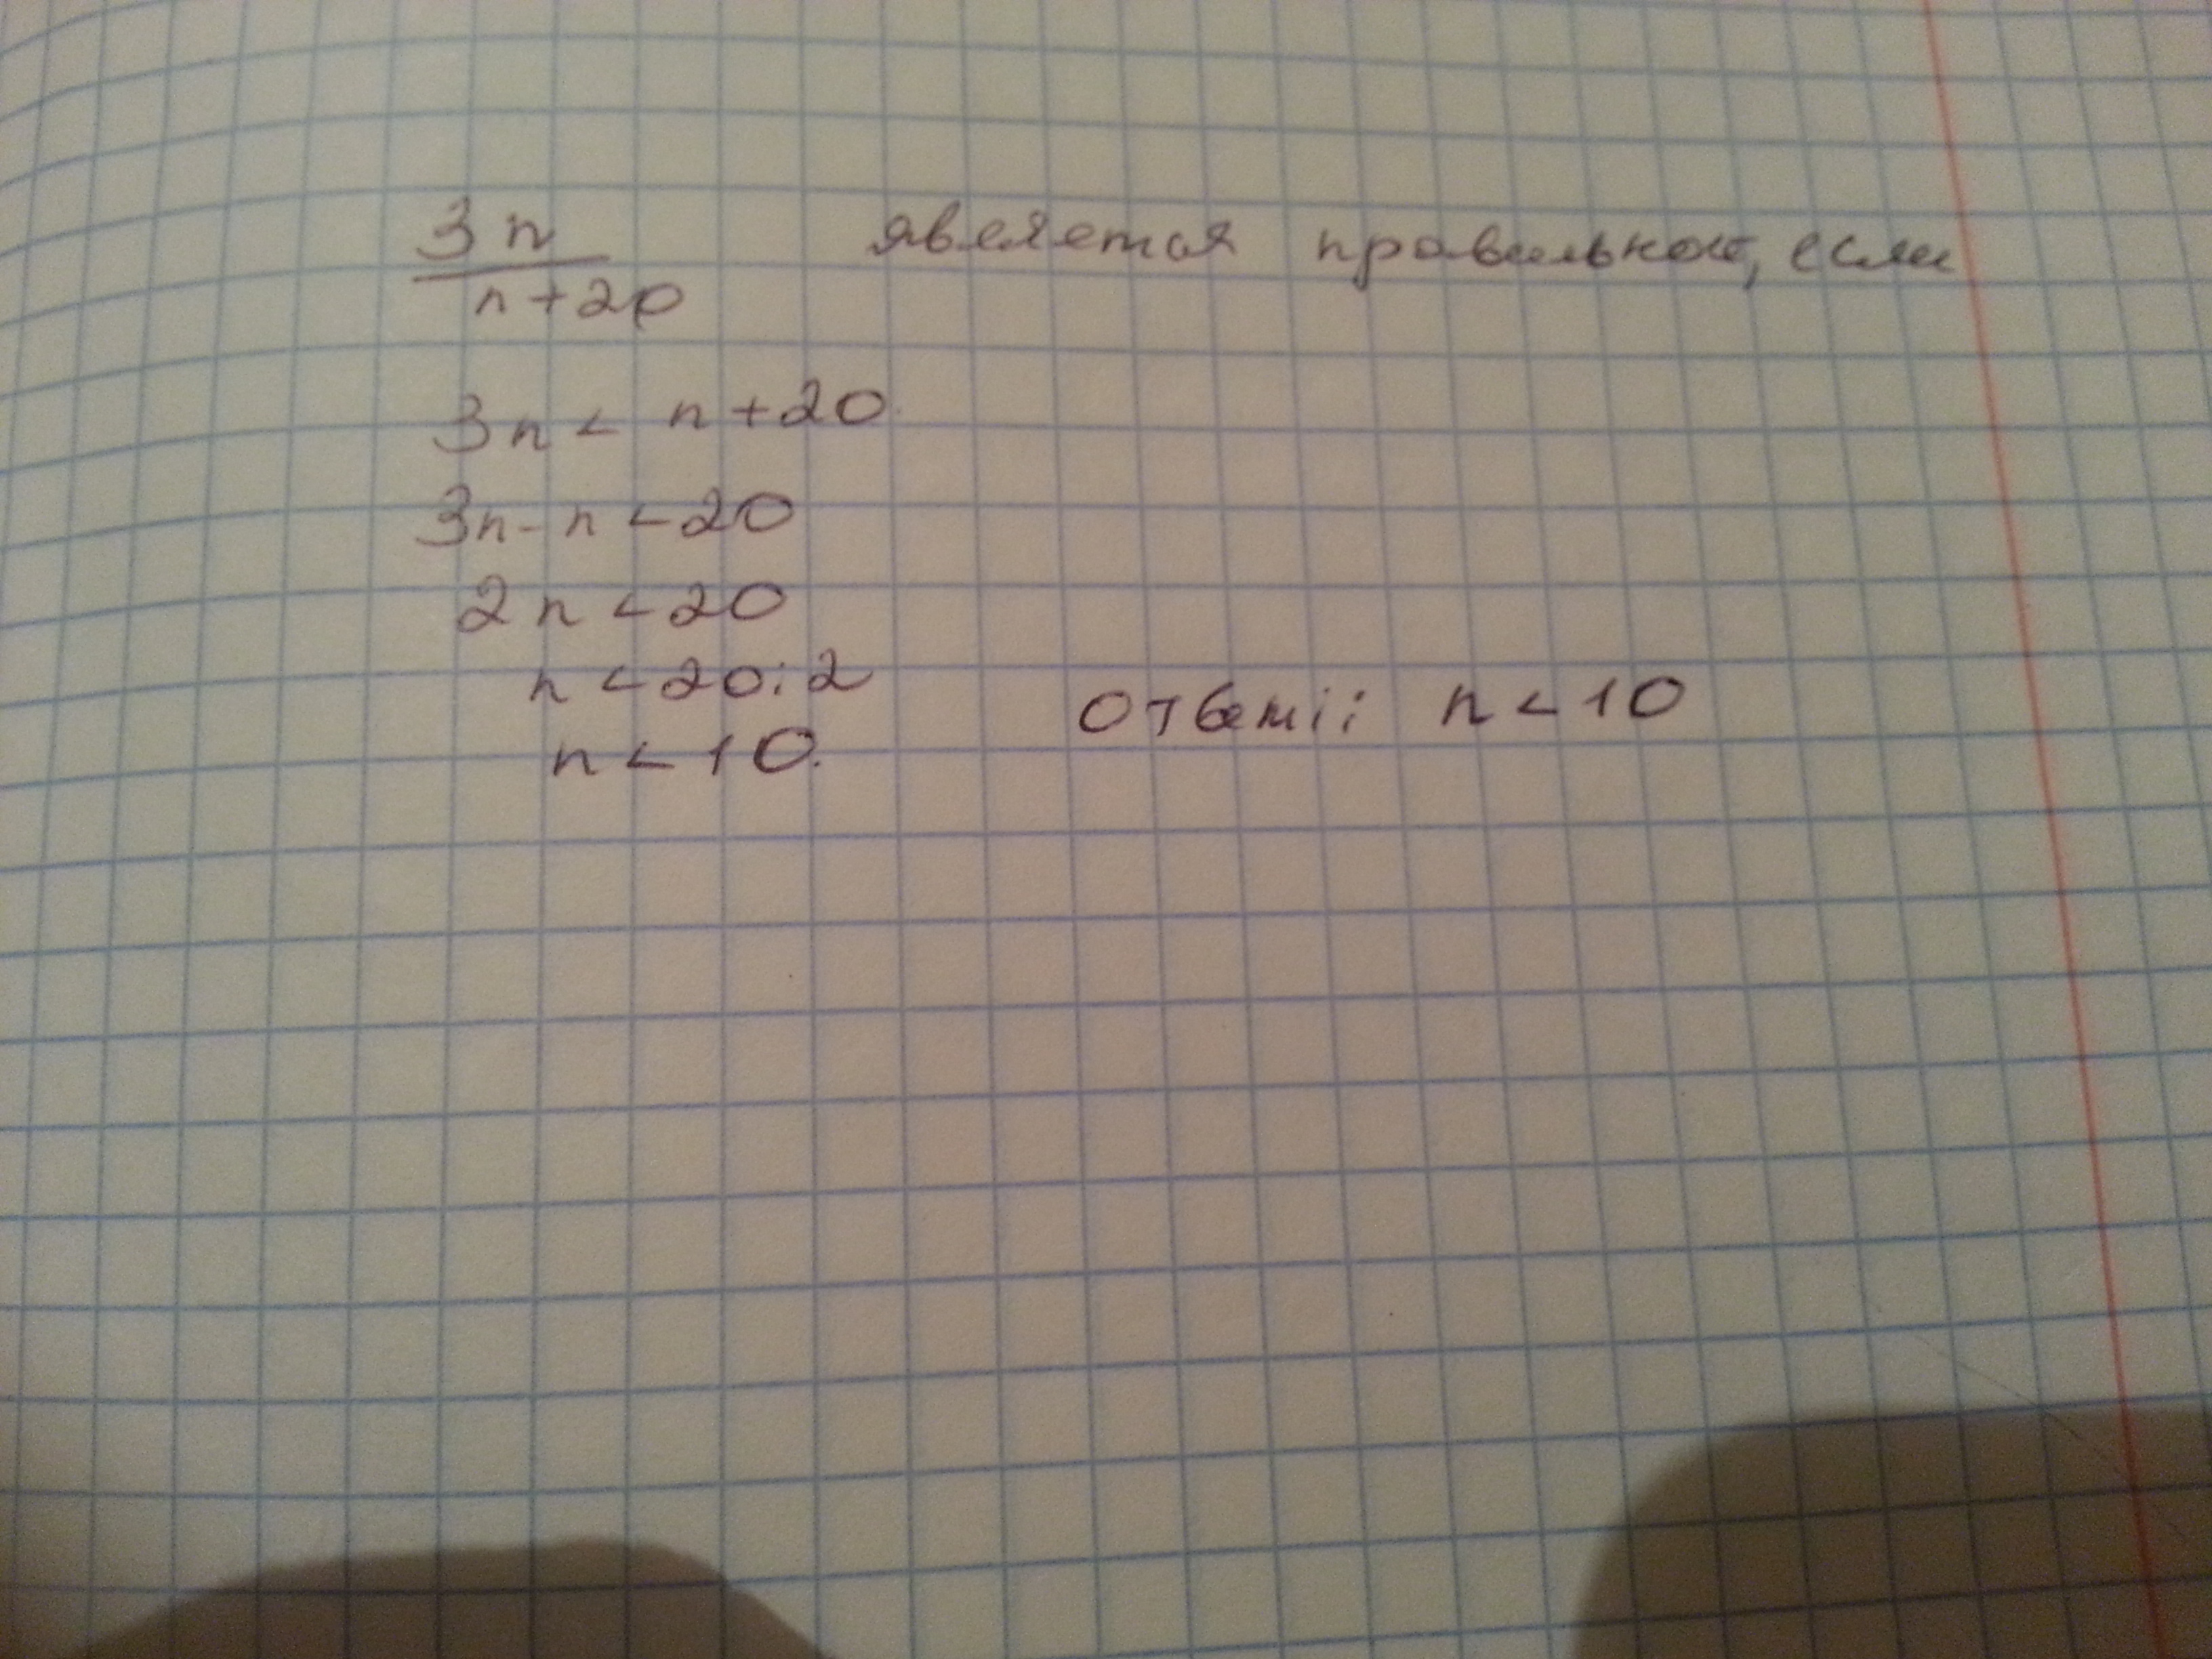 3n
n+20
является правильной, если
3n < n+20
3n-n <20
2n <20
n <20:2
n <10.
Ответ: n <10